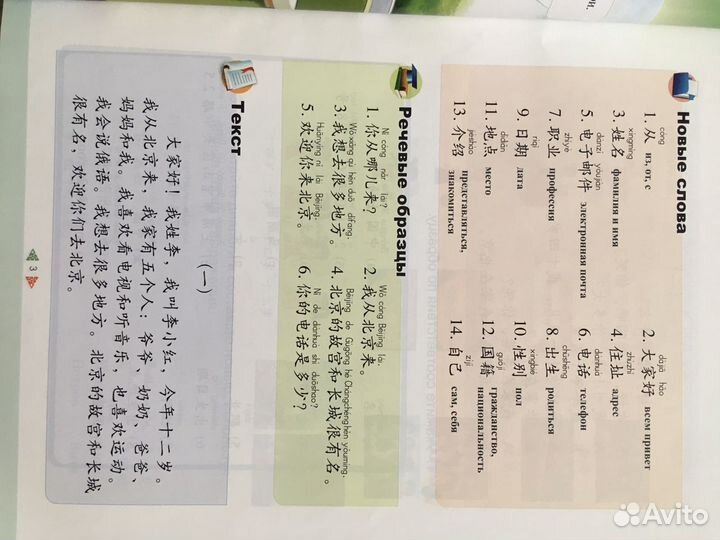 Новые слова
cóng dàjiā hǎo
1. 从 из, от, с 2. 大家好 всем привет
xìngmíng zhùzhǐ
3. 姓名 фамилия и имя 4. 住址 адрес
diànzǐ yóujiàn diànhuà
5. 电子邮件 электронная почта 6. 电话 телефон
zhíyè chūshēng
7. 职业 профессия 8. 出生 родиться
rìqī xìngbié
9. 日期 дата 10. 性别 пол
dìdiǎn guójí
11. 地点 место 12. 国籍 гражданство,
национальность
jièshào zìjǐ
13. 介绍 представляться, 14. 自己 сам, себя
знакомиться
Речевые образцы
Nǐ cóng nǎr lái? Wǒ cóng Běijīng lái.
1. 你从哪儿来? 2. 我从北京来。
Wǒ xiǎng qù hěn duō dìfang. Běijīng de Gùgōng hé Chángchéng hěn yǒumíng.
3. 我想去很多地方。 4. 北京的故宫和长城很有名。
Huānyíng nǐ lái Běijīng. Nǐ de diànhuà shì duōshao?
5. 欢迎你来北京。 6. 你的电话是多少?
Текст
(一)
大家好!我姓李,我叫李小红,今年十二岁。
我从北京来。我家有五个人:爷爷、奶奶、爸爸、
妈妈和我。我喜欢看电视和听音乐,也喜欢运动。
我会说俄语。我想去很多地方。北京的故宫和长城
很有名,欢迎你们去北京。
3
Avito